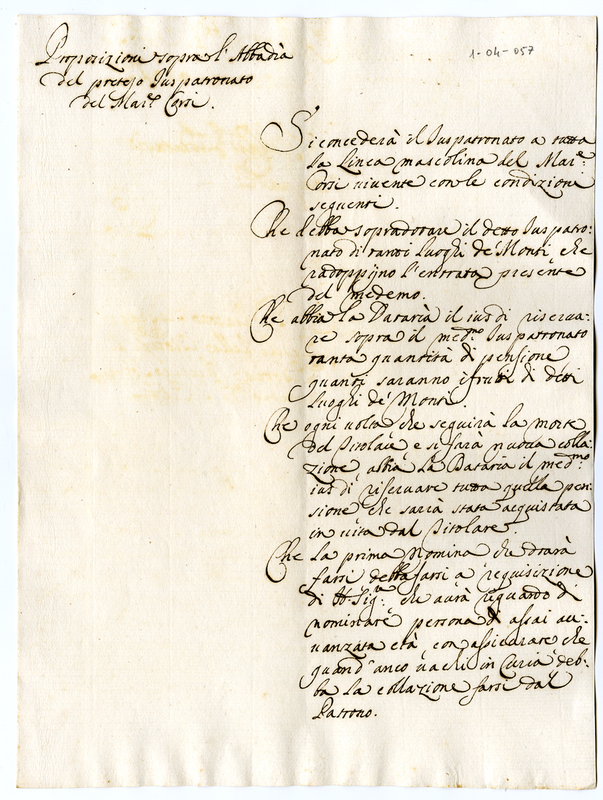 1-04-057
Proposizioni sopra l'Abbadia
del preteso Juspatronato
del Mar.e Corsi.
Si concederà il Juspatronato a tutta
la Linea mascolina del Mar.e
Corsi vivente con le condizioni
seguenti.
Che debba sopradotare il detto Juspatro:
nato di tanti Luoghi de' Monti, che
radoppijno l'entrata presente
del medemo.
Che abbia la Dataria il ius di riserva:
re sopra il med.mo Juspatronato
tanta quantità di pensione
quanti saranno i frutti di detti
Luoghi de' Monti.
Che ogni volta che seguirà la morte
del Titolare e si farà nuova colla:
zione, abbia la Dataria il med.mo
ius di riservare tutta quella pen:
sione che sarà stata acquistata
in vita dal Titolare.
Che la prima Nomina che dovrà
farsi debba farsi a requisizione
di N. Sig.re, che avrà riguardo di
nominare persona di assai av:
vanzata età, con assicurare che
quand'anco vachi in Curia deb:
ba la collazione farsi dal
Patrono.